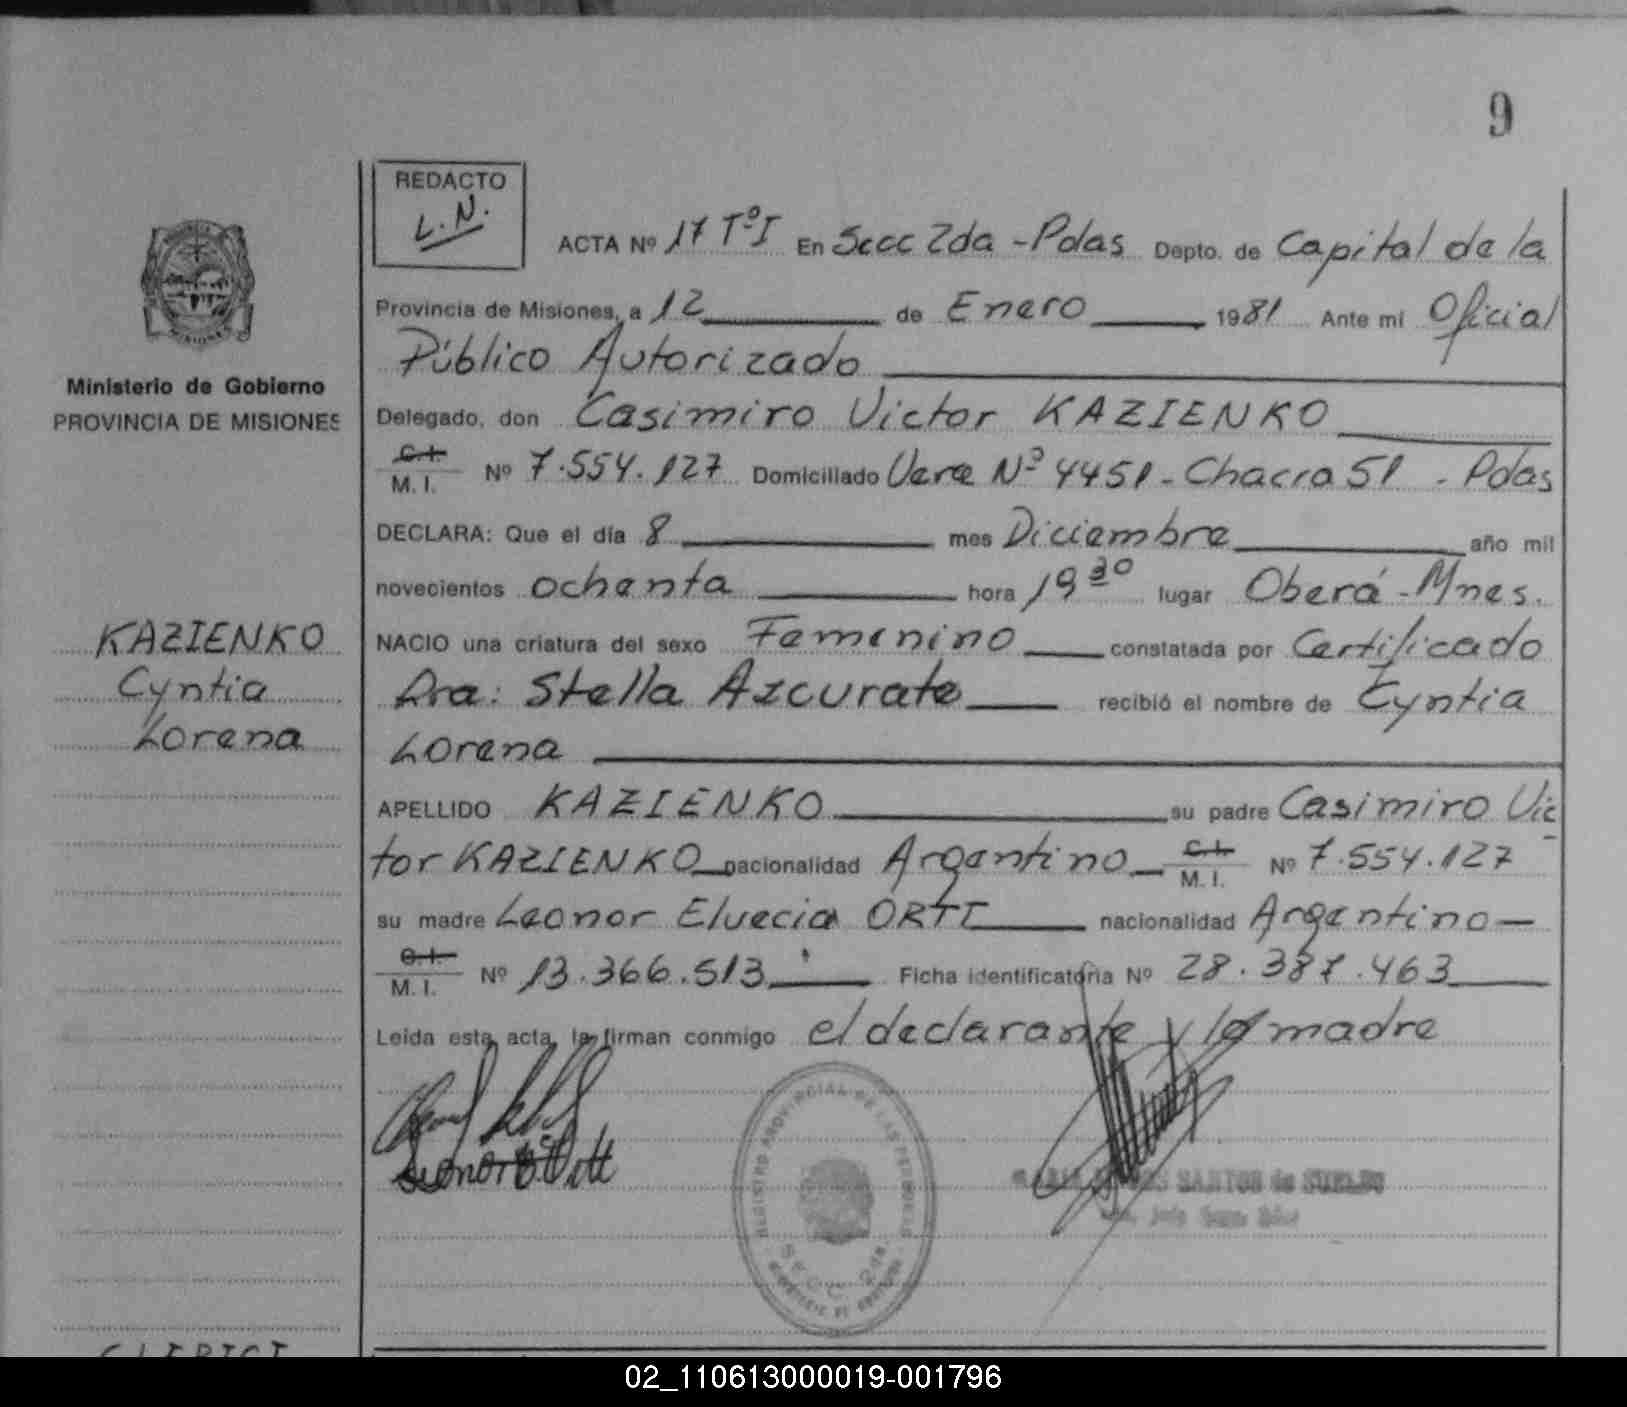 9
REDACTO
L.N.
ACTA Nº 17 TºI En Secc 2da - Pdas Depto. de Capital de la
Provincia de Misiones, a 12 de Enero 1981 Ante mi Oficial
Público Autorizado
Ministerio de Gobierno
PROVINCIA DE MISIONES
Delegado, don Casimiro Victor KAZIENKO
C.I.
M.I. Nº 7.554.127 Domiciliado Vera Nº 4451 - Chacra 51 - Pdas
DECLARA: Que el día 8 mes Diciembre año mil
novecientos ochenta hora 19 30 lugar Oberá - Mnes.
KAZIENKO
Cyntia
Lorena
NACIO una criatura del sexo Femenino constatada por Certificado
Dra: Stella Azcurate recibió el nombre de Cyntia
Lorena
APELLIDO KAZIENKO su padre Casimiro Vic
tor KAZIENKO nacionalidad Argentino C.I.
M.I. Nº 7.554.127
su madre Leonor Elvecia ORTT nacionalidad Argentino
C.I.
M.I. Nº 13.366.513 Ficha identificatoria Nº 28.387.463
Leída esta acta, la firman conmigo el declarante y la madre
Leonor E. Ott
REGISTRO PROVINCIAL DE LAS PERSONAS
SECC. 2da.
SANTOS de
02_110613000019-001796